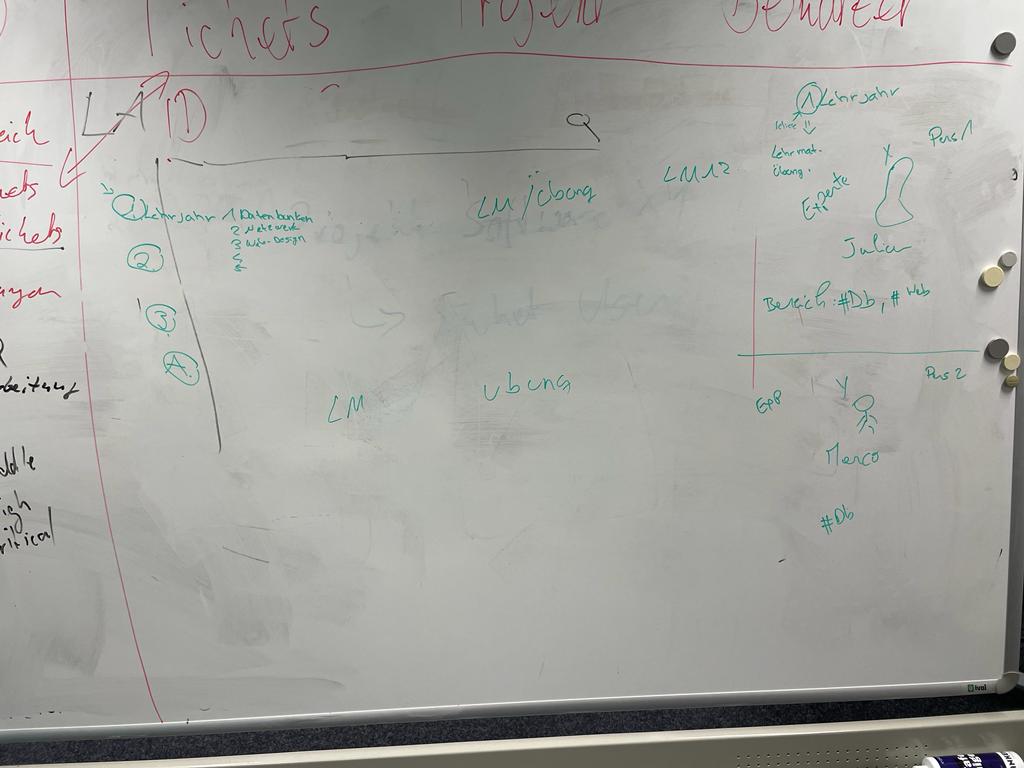 Tickets Projekt Benutzer
LA 1D
eich
ckets
ickets
ungen
R
rbeitung
ddle
igh
ritical
1 Lehrjahr 1 Datenbanken
2 Netzwerk
3 Web-Design
4
5
2
3
A.
LM / Übung
LM 12
LM
Übung
1 Lehrjahr
Lehrmat.
Übung.
Experte
X
Pers 1
Julian
Bereich: #Db, # Web
Exp
Y
Pers 2
Marco
#Db